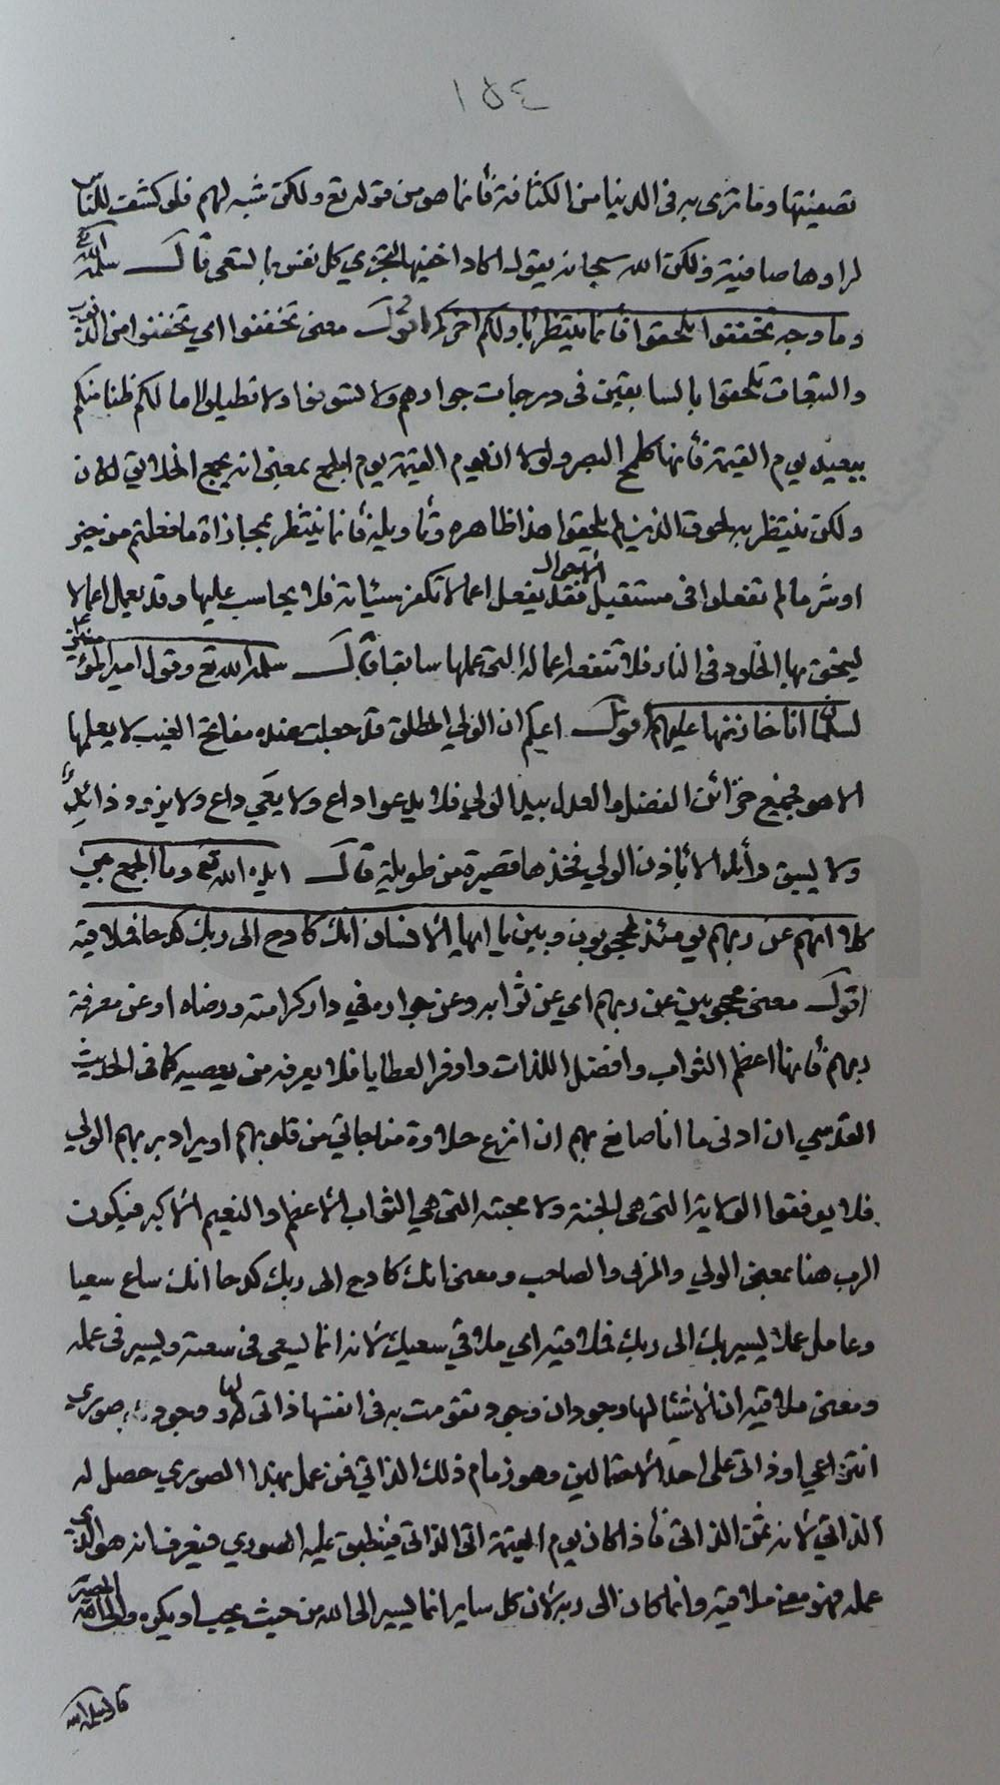 ١٥٤
تصفيتها وما ترى به في الدنيا من الكثافة فإنما هو من قوله تع ولكن شبه لهم فلو كشفت للناس
لراوها صافية ولكن الله سبحانه يقول اكاد اخفيها لتجزي كل نفس بما تسعى قال سلمه الله تع
وما وجه تخففوا تلحقوا فانما ينتظر باولكم اخركم اقول معنى تخففوا اي تخففوا من الذنوب
والتبعات تلحقوا بالسابقين في درجات جوارهم ولا تسوفوا ولا تطيلوا امالكم ظنا منكم
ببعيد يوم القيمة فأنها كلمح البصر ولولا ان يوم القيمة يوم الجمع بمعنى انه يجمع الخلايق لكان
ولكن ينتظر به لحوق الذين لم يلحقوا هذا ظاهره وتأويله فانما ينتظر بمجازاة ما فعلتم من خير
او شر ما لم تفعلوا في مستقبل الاحوال فقد يفعل اعمالا تكفر سيئاته فلا يحاسب عليها وقد يعمل اعمالا
يستحق بها الخلود في النار فلا تنفعه اعماله التي عملها سابقا قال سلمه الله تع وقول امير المؤمنين ع
لسلمان انا خازنها عليهم اقول اعلم ان الولي المطلق قد جعلت عنده مفاتح الغيب لا يعلمها
الا هو فجميع خزائن الفضل والعدل بيد الولي فلا يدعو داع ولا يعي واع ولا يزود ذائد
ولا يسبق رائد الا بأذن الولي فخذها قصيرة من طويلة قال ايده الله تع وما الجمع بين
كلا انهم عن ربهم يومئذ لمحجوبون وبين يا ايها الانسان انك كادح الى ربك كدحا فملاقيه
اقول معنى محجوبين عن ربهم اي عن ثوابه وعن جواره في دار كرامته ورضاه او عن معرفة
ربهم فأنها اعظم الثواب وافضل اللذات واوفر العطايا فلا يعرفه من يعصيه كما في الحديث
القدسي ان ادنى ما انا صانع بهم ان انزع حلاوة مناجاتي من قلوبهم او يراد بربهم الولي
فلا يوفقوا الولاية التي هي الجنة ولا محبته التي هي الثواب الاعظم والنعيم الاكبر فيكون
الرب هنا بمعنى الولي والمربي والصاحب ومعنى انك كادح الى ربك كدحا انك ساع سعيا
وعامل عملا يسير بك الى ربك فملاقيه اي ملاقي سعيك لانه انما يسعى في سعته ويسير في عمله
ومعنى ملاقيه ان الاشياء لها وجودان وجود تقومت به في انفسها ذاتي لها ووجود صوري
انتزاعي او ذاتي على احد الاحتمالين وهو زمام ذلك الذاتي فمن عمل بهذا الصوري حصل له
الذاتي لانه ثمن الذاتي فأذا كان يوم القيمة اتى الذاتي فينطبق عليه الصوري فيعرف انه هو الذي
عمله فهو معنى ملاقيه وانما كان الى ربه لان كل ساير انما يسير الى الله من حيث يحب او يكره والى الله المصير
قال سلمه الله